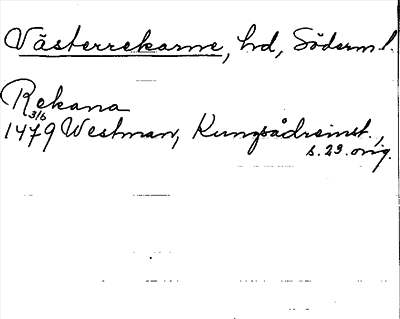 Västerrekarne, hd, Söderml.
Rekana
3/6
1479 Westman, Kungsådreinst.,
s. 23. orig.